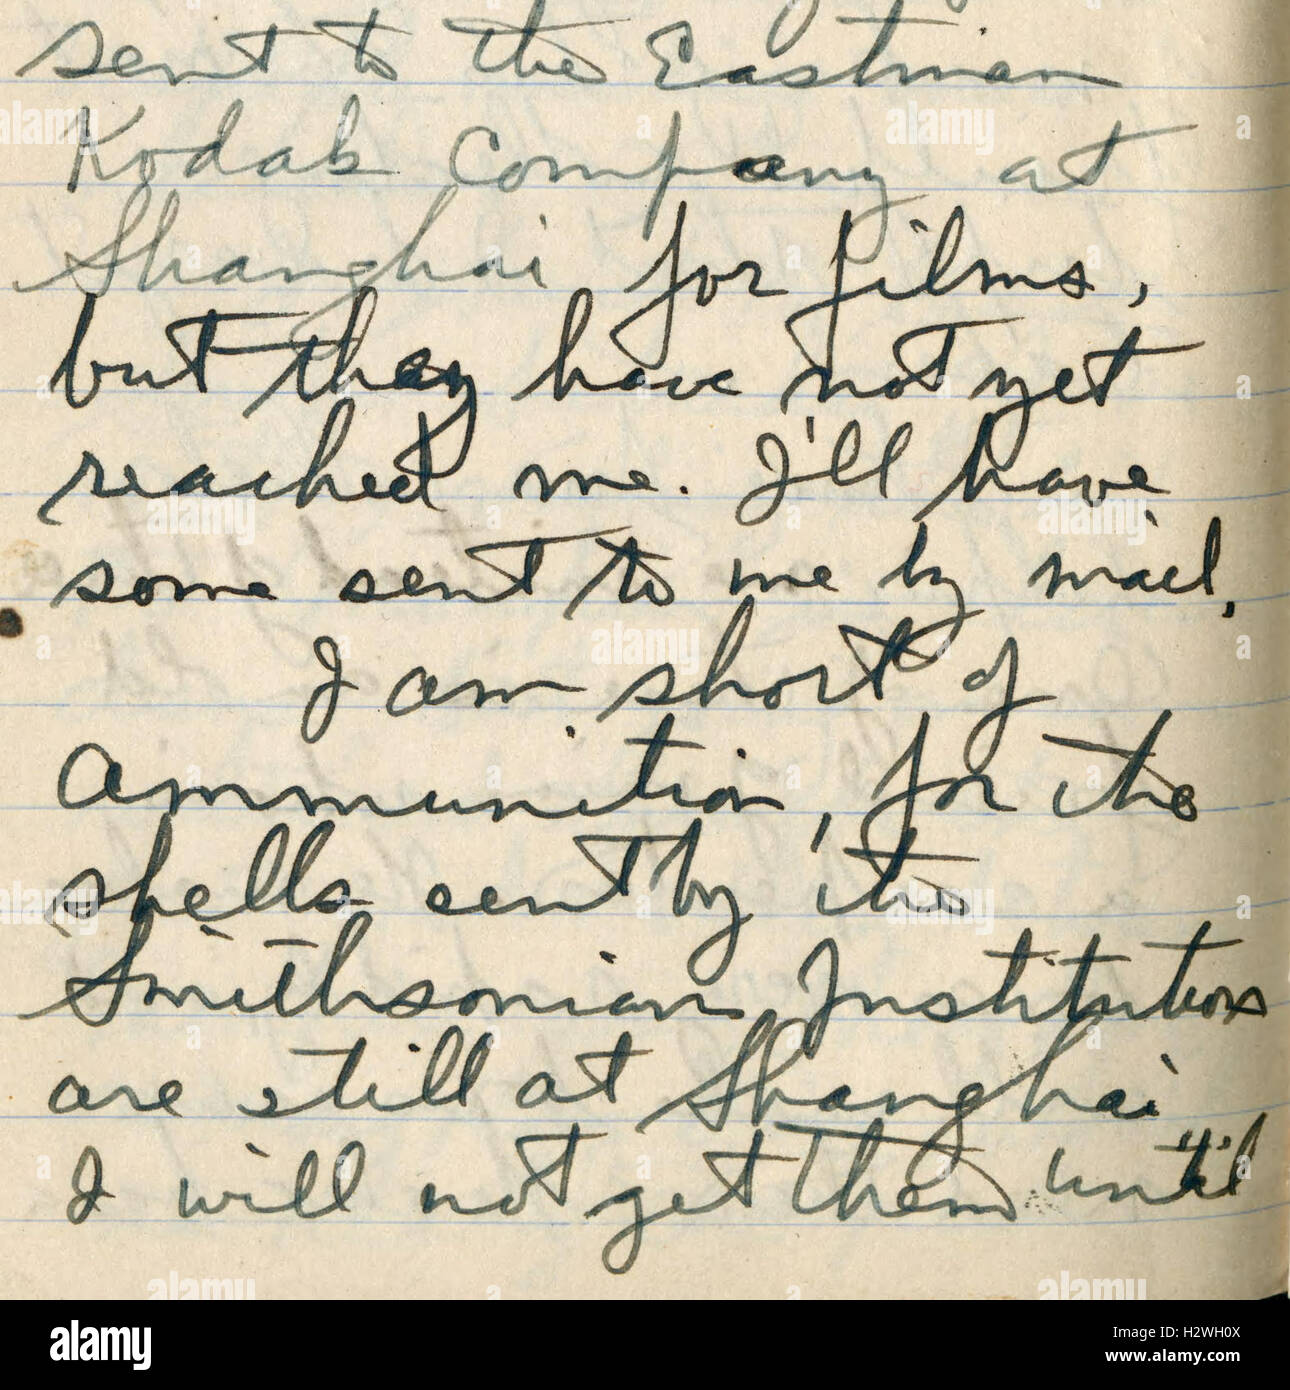 sent to the Eastman
Kodak Company at
Shanghai for films,
but they have not yet
reached me. I'll have
some sent to me by mail.
I am short of
ammunition, for the
shells sent by the
Smithsonian Institution
are still at Shanghai
I will not get them until
alamy
Image ID: H2WH0X
www.alamy.com